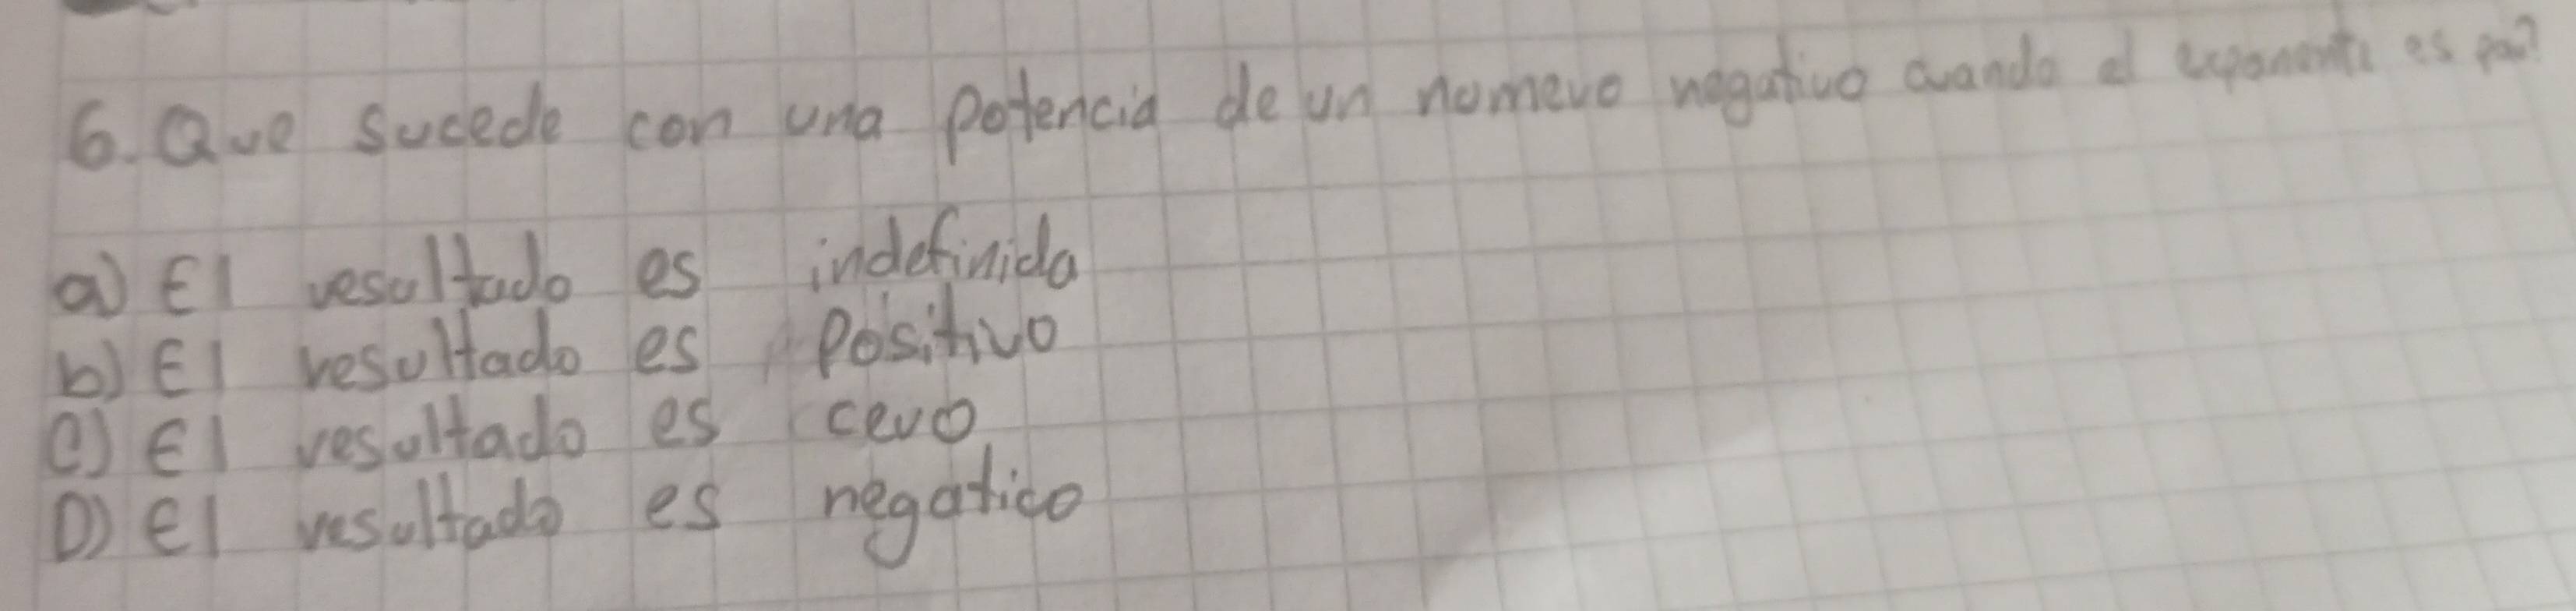 6. Que sucede con una potencia de un nomero negativo cuando el exponente es par?
a) El resultado es indefinida
b) El resultado es Positivo
C) El resultado es cero
D) El resultado es negatico